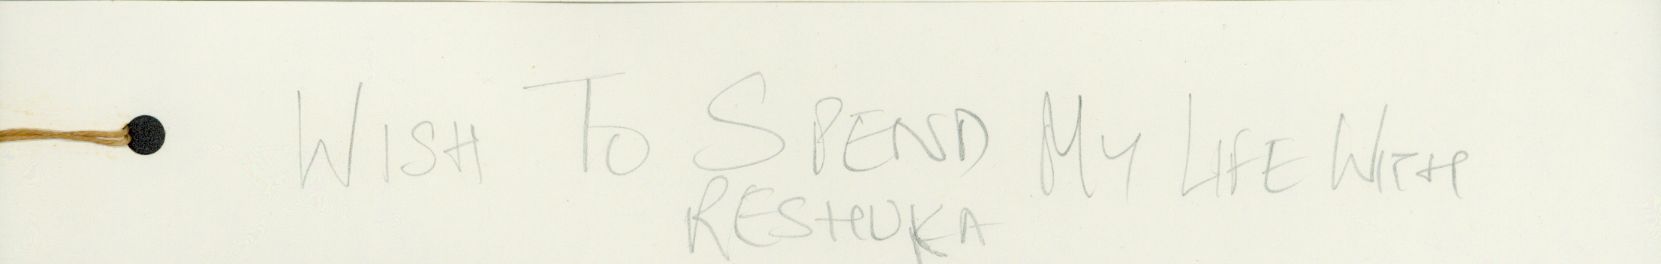 WISH TO SPEND MY LIFE WITH
RESHUKA